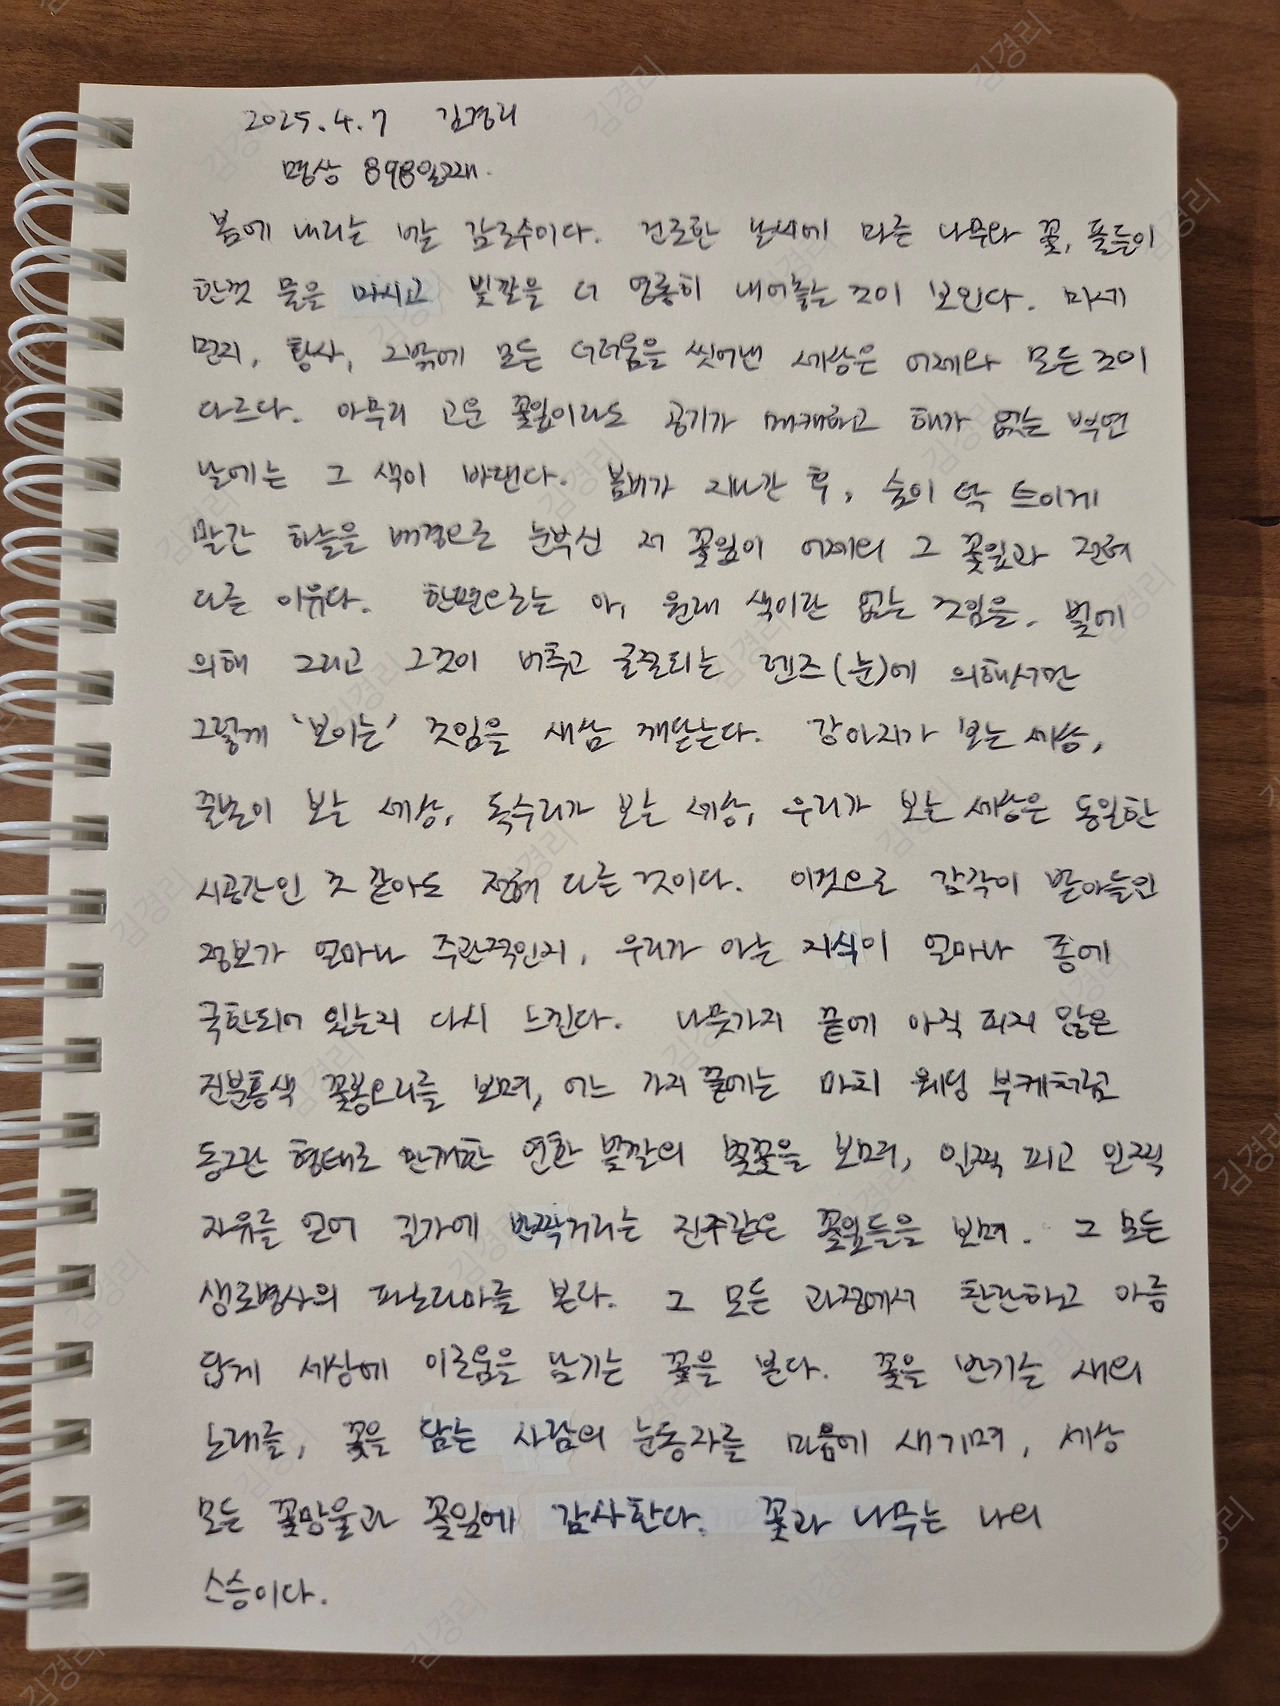 2025.4.7 김경리
명상 898일째.
봄에 내리는 비는 감로수이다. 건조한 날씨에 마른 나무와 꽃, 풀들이
한껏 물을 마시고 빛깔을 더 영롱히 내어놓는 것이 보인다. 미세
먼지, 황사, 그밖에 모든 더러움을 씻어낸 세상은 어제와 모든 것이
다르다. 아무리 고운 꽃잎이라도 공기가 매캐하고 해가 없는 뿌연
날에는 그 색이 바랜다. 봄비가 지나간 후, 숨이 탁 트이게
말간 하늘을 배경으로 눈부신 저 꽃잎이 어제의 그 꽃잎과 전혀
다른 이유다. 한편으로는 아, 원래 색이란 없는 것임을. 빛에
의해 그리고 그것이 비추고 굴절되는 렌즈(눈)에 의해서만
그렇게 '보이는' 것임을 새삼 깨닫는다. 강아지가 보는 세상,
곤충이 보는 세상, 독수리가 보는 세상, 우리가 보는 세상은 동일한
시공간인 것 같아도 전혀 다른 것이다. 이것으로 감각이 받아들인
정보가 얼마나 주관적인지, 우리가 아는 지식이 얼마나 종에
국한되어 있는지 다시 느낀다. 나뭇가지 끝에 아직 피지 않은
진분홍색 꽃봉오리를 보며, 어느 가지 끝에는 마치 웨딩 부케처럼
동그란 형태로 만개한 연한 빛깔의 벚꽃을 보며, 일찍 피고 일찍
자유를 얻어 길가에 반짝거리는 진주같은 꽃잎들을 보며. 그 모든
생로병사의 파노라마를 본다. 그 모든 과정에서 찬란하고 아름
답게 세상에 이로움을 남기는 꽃을 본다. 꽃을 반기는 새의
노래를, 꽃을 담는 사람의 눈동자를 마음에 새기며, 세상
모든 꽃망울과 꽃잎에 감사한다. 꽃과 나무는 나의
스승이다.